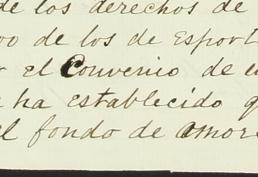 de los derechos de
de los de Esport
el Convenio de
ha establecido
el fondo de amor